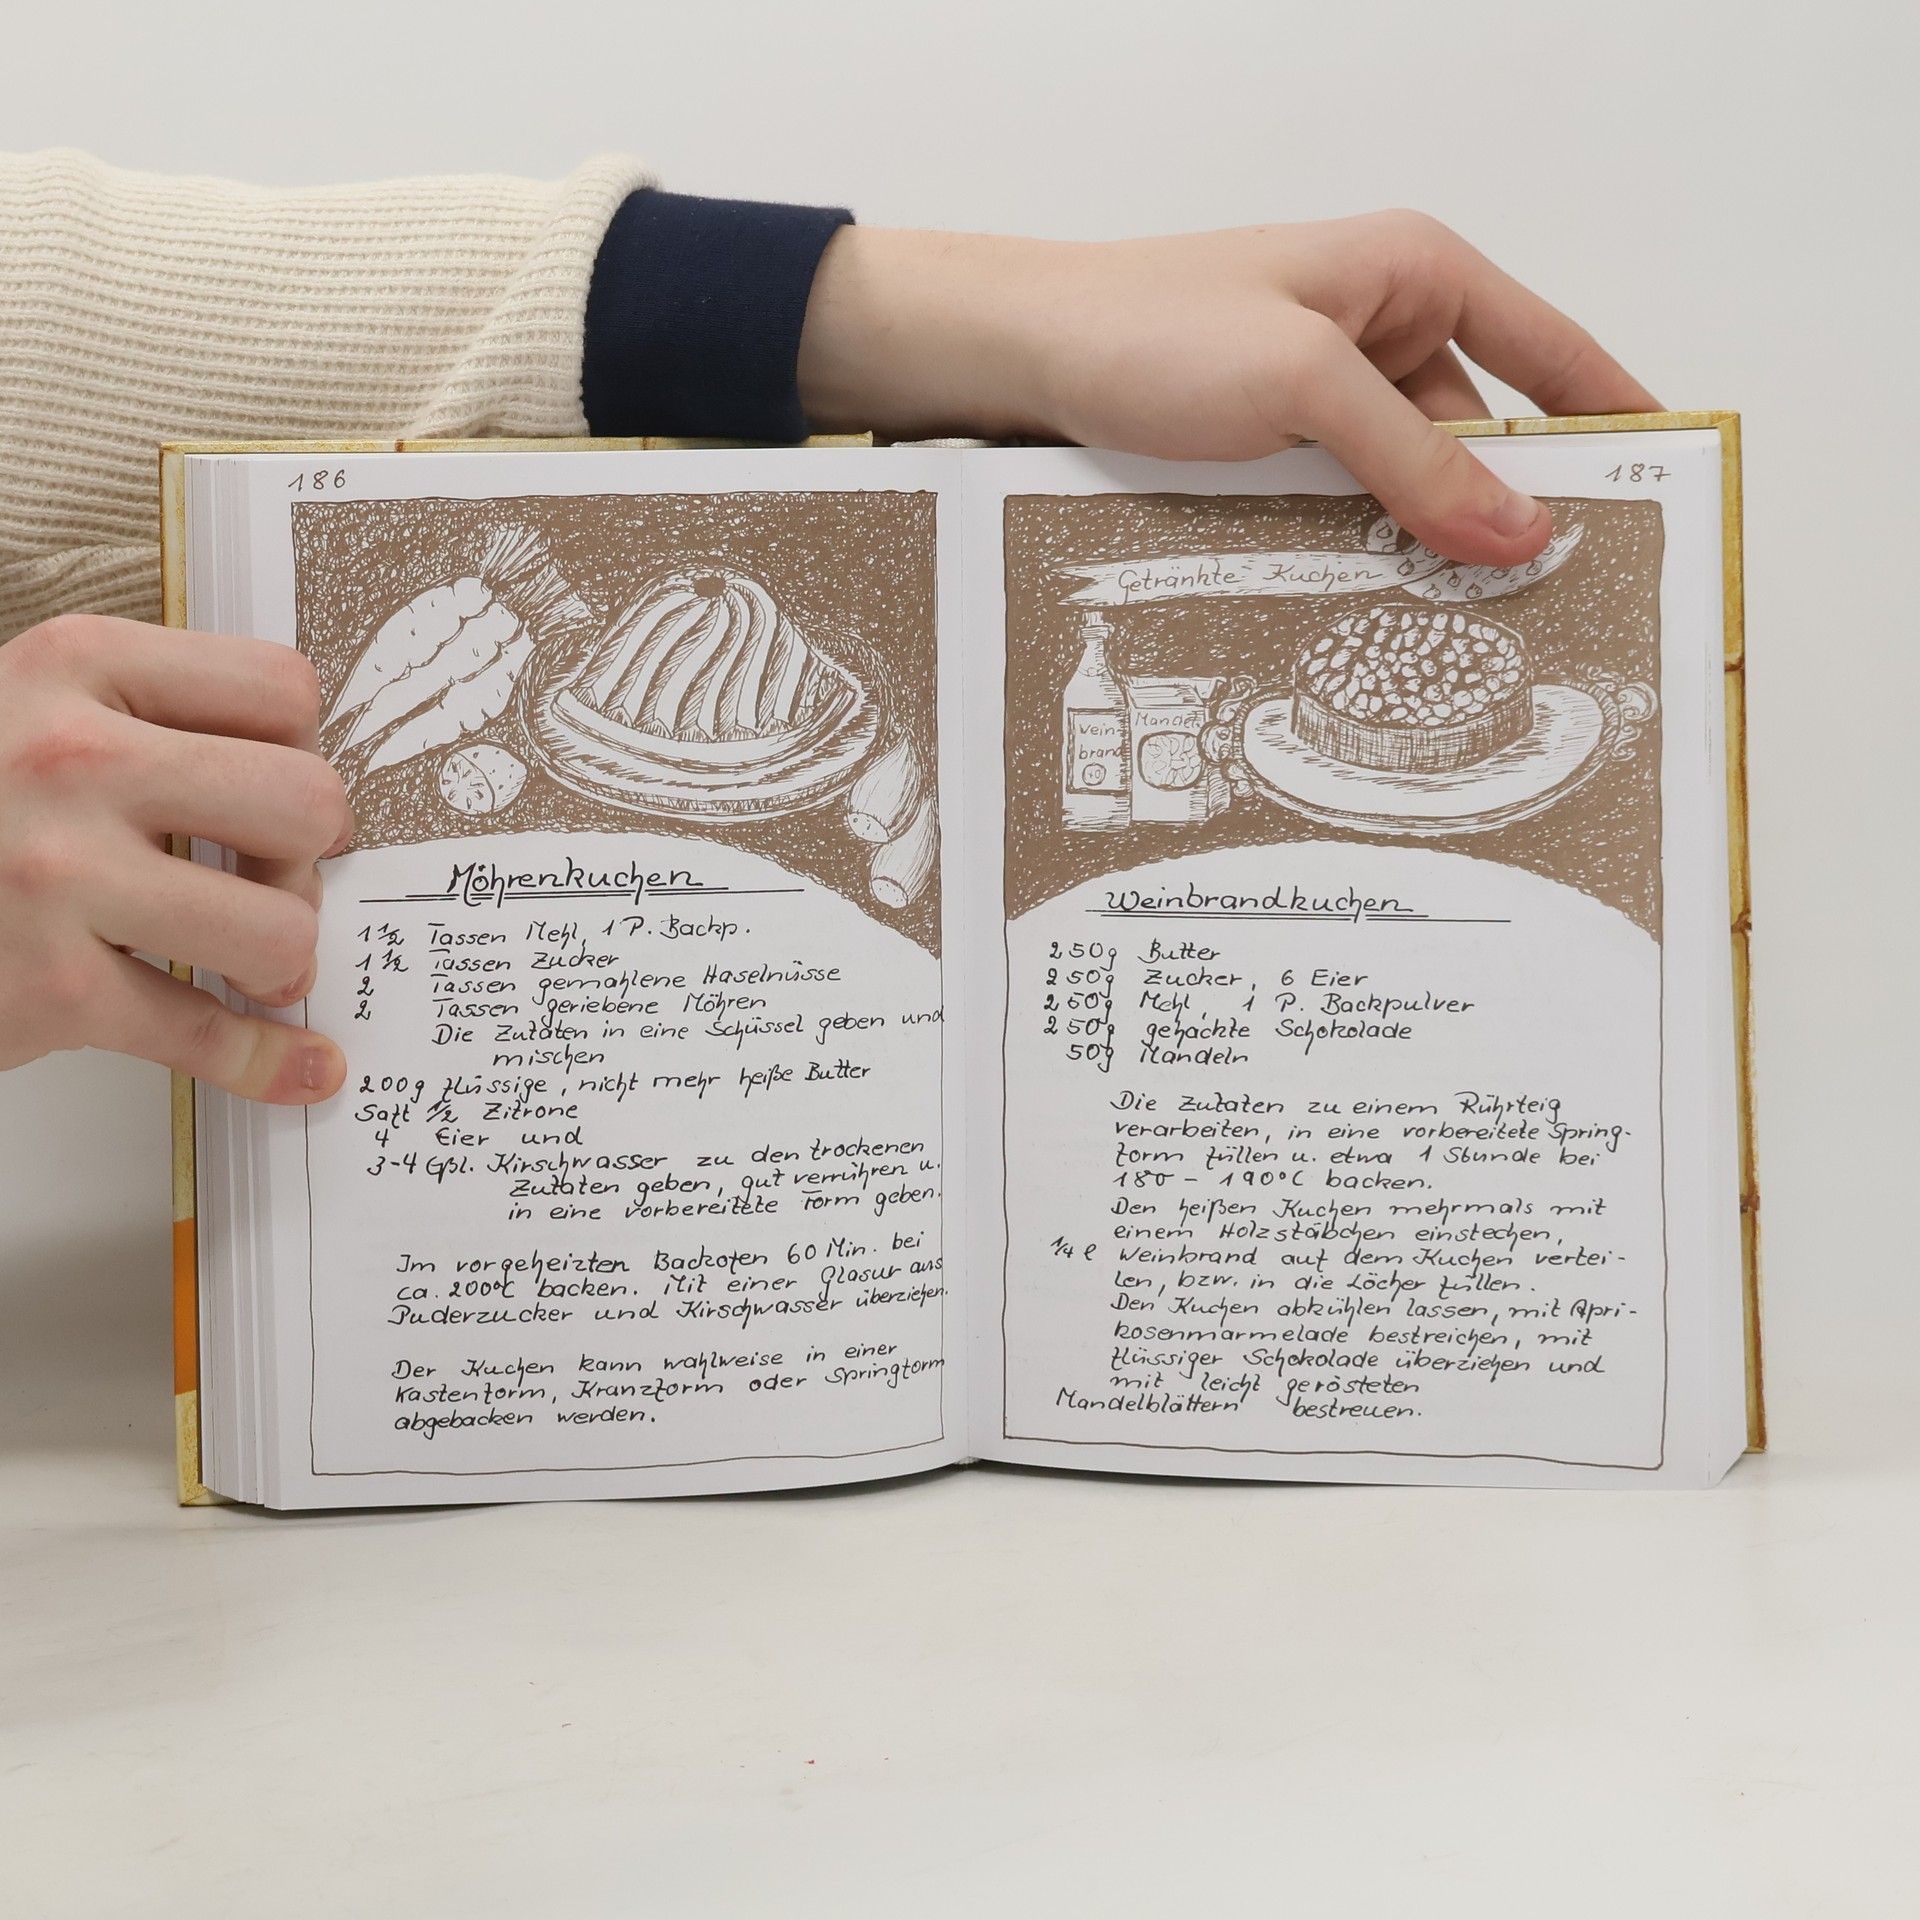 186
Möhrenkuchen
1 1/2 Tassen Mehl, 1 P. Backp.
1 1/2 Tassen Zucker
2 Tassen gemahlene Haselnüsse
2 Tassen geriebene Möhren
Die Zutaten in eine Schüssel geben und
mischen
200g flüssige, nicht mehr heiße Butter
Saft 1/2 Zitrone
4 Eier und
3-4 Eßl. Kirschwasser zu den trockenen
Zutaten geben, gut verrühren u.
in eine vorbereitete Form geben.
Im vorgeheizten Backofen 60 Min. bei
ca. 200°C backen. Mit einer Glasur aus
Puderzucker und Kirschwasser überziehen.
Der Kuchen kann wahlweise in einer
Kastenform, Kranzform oder Springform
abgebacken werden.
187
Getränkte Kuchen
Wein-
brand
Mandel
Weinbrandkuchen
250g Butter
250g Zucker, 6 Eier
250g Mehl, 1 P. Backpulver
250g gehackte Schokolade
50g Mandeln
Die Zutaten zu einem Rührteig
verarbeiten, in eine vorbereitete Spring-
form füllen u. etwa 1 Stunde bei
180 - 190°C backen.
Den heißen Kuchen mehrmals mit
einem Holzstäbchen einstechen,
1/4 l Weinbrand auf dem Kuchen vertei-
len, bzw. in die Löcher füllen.
Den Kuchen abkühlen lassen, mit Apri-
kosenmarmelade bestreichen, mit
flüssiger Schokolade überziehen und
mit leicht gerösteten
Mandelblättern bestreuen.